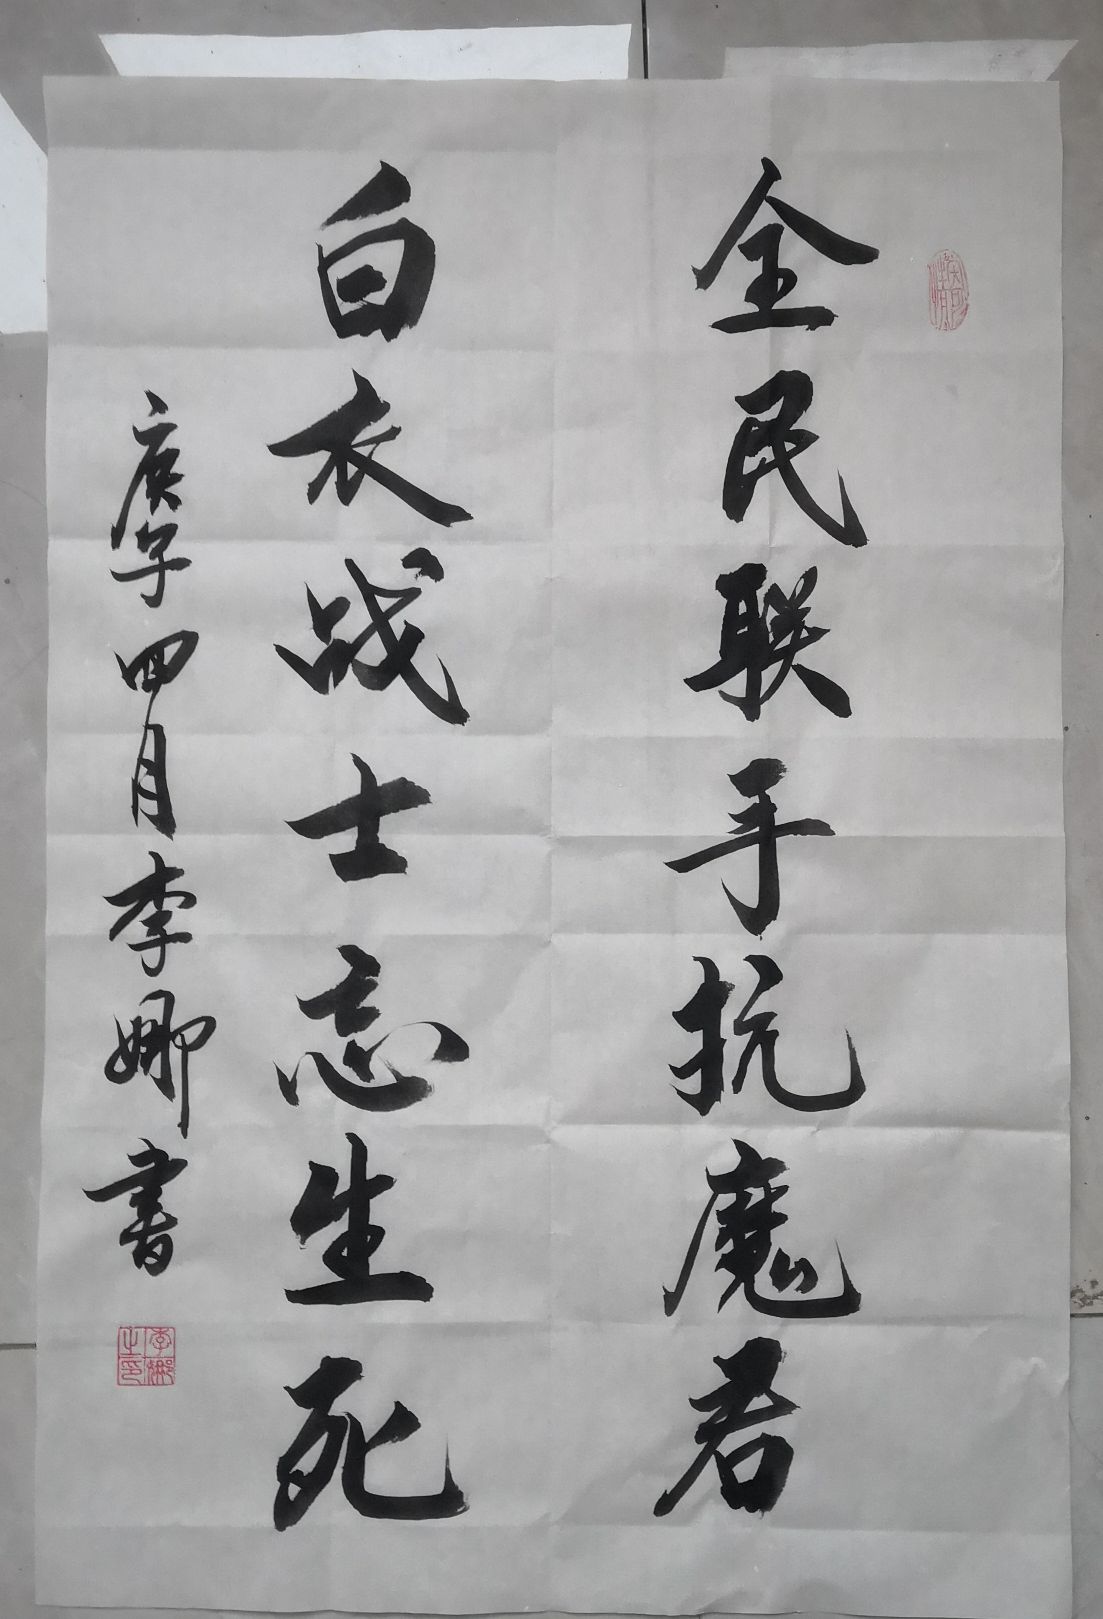 全民联手抗魔君
白衣战士忘生死
庚子四月李娜书
李娜之印